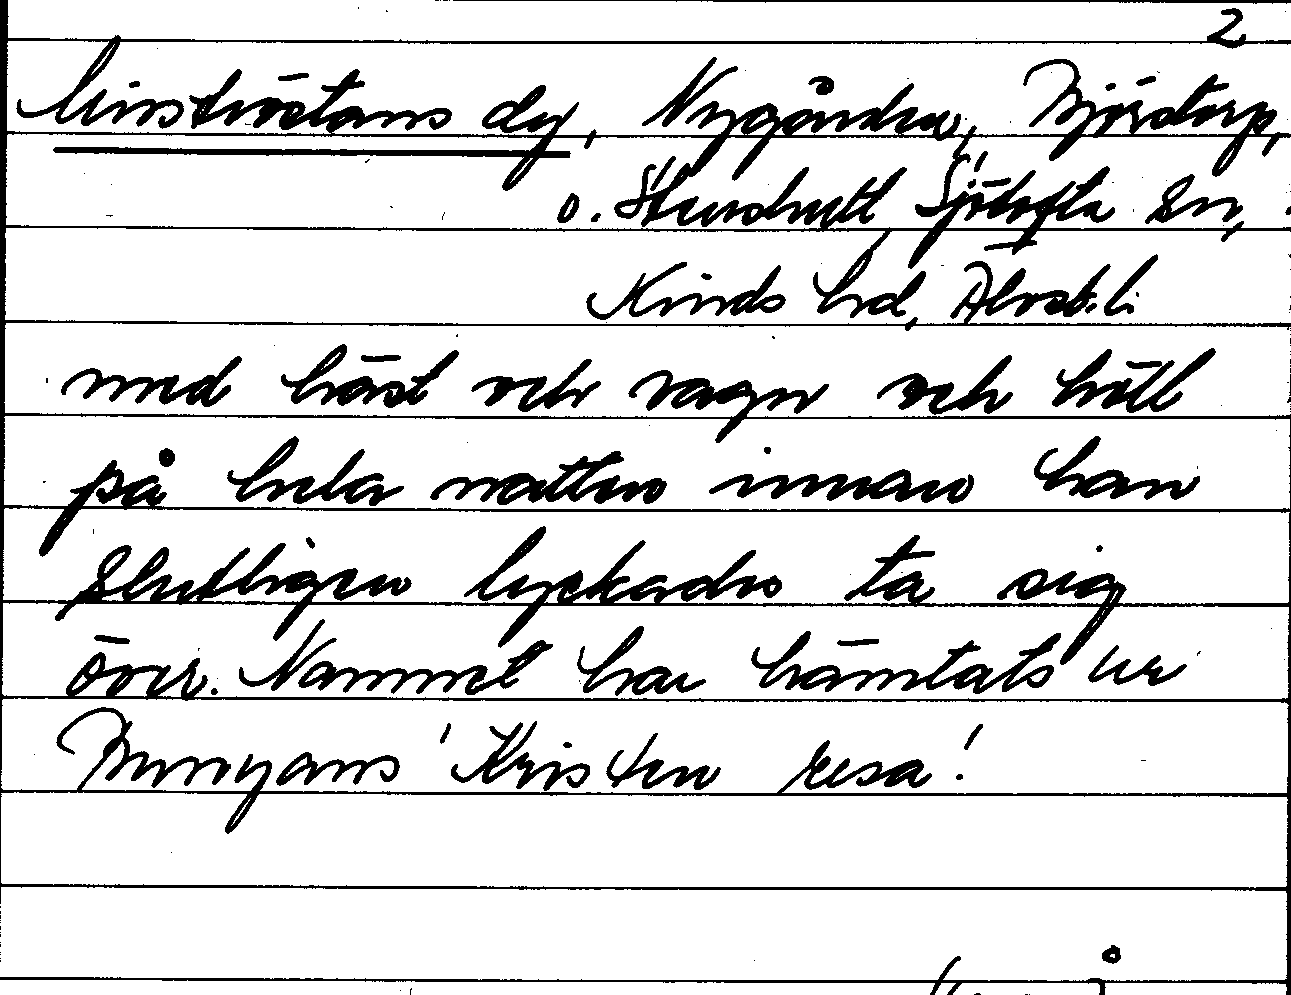 2
Misströstans dy, Nygården,
o. Sjötofta sn,
Kinds hd, Älvsb. l.
med häst och vagn och höll
på hela natten innan han
slutligen lyckades ta sig
över. Namnet har hämtats ur
Bunyans 'Kristen resa'.